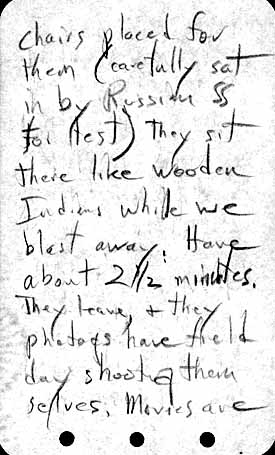 chairs placed for
them (carefully sat
in by Russian SS
for test) They sit
there like wooden
Indians while we
blast away. Have
about 2 1/2 minutes.
They leave, + they
photogs have field
day shooting them
selves. Movies are